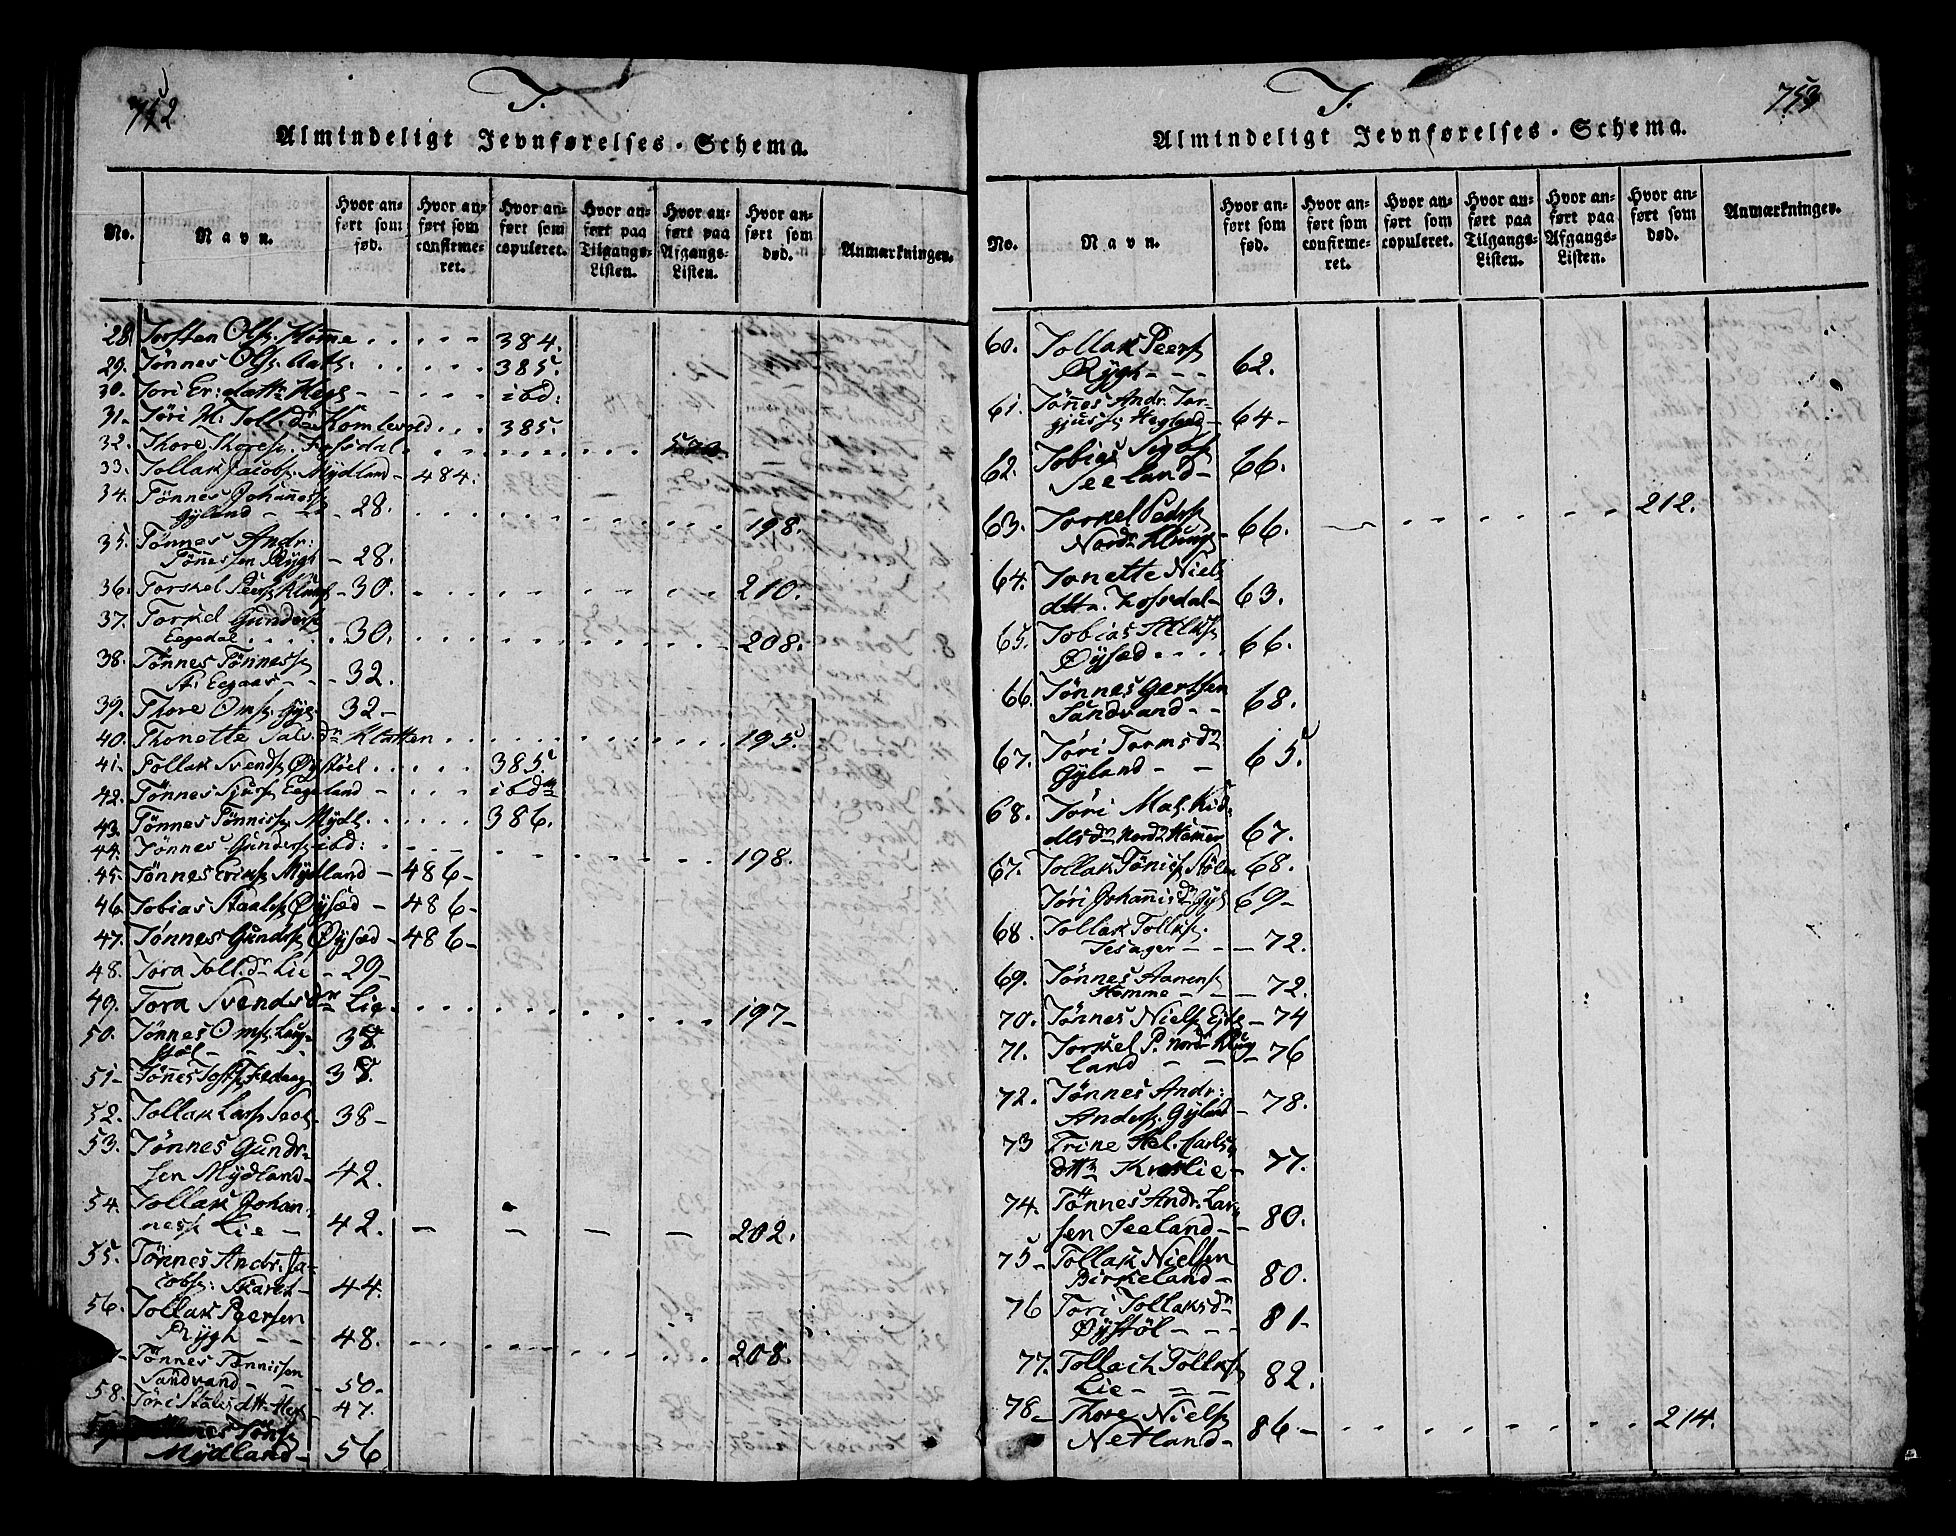 752
T.
Almindeligt Jevnførelses-Schema.
No.
Navn.
Hvor anført som fød.
Hvor anført som confirmeret.
Hvor anført som copuleret.
Hvor anført paa Tilgangs-Listen.
Hvor anført paa Afgangs-Listen.
Hvor anført som død.
Anmærkninger.
28. Torsten Ols. Homme . . . . . 384.
29. Tönnes Ols. Aats. . . . . . 385.
30. Tori Er: datt. Hegs - - - - ibd:
31. Töri M. Toll. dr Homlevold . . . 385.
32. Thore Thores. Fossdal . . . . . . . . .
33. Tollak Jacobs. Mydland - 484.
34. Tönnes Johaness.
Gyland - - 28. . . . . . . 198.
35. Tönnes Andr:
Tönessen Rygh - 28.
36. Torkel Peers. - 30. . . . . . . 210.
37. Torkel Gunders.
Eegedal . . . . . 30. . . . . . . 208.
38. Tönnes Tönness.
St. Eegaas - - - 32.
39. Thore Oms. Gyl. 32-
40. Thonette Salv. dr Hlatten . . . . . . 195.
41- Tollak Svends. Öystöel . . . . . 385
42. Tönnes Sjurs. Eegeland - . . . ibdm
43. Tönnes Tönniss. Mydl. . . . . . 386.
44. Tönnes Gunders. ibd: . . . . . . 198.
45. Tönnes Eriks. Mydland - 486-
46 Tobias Staals. Öysæd - 486-
47. Tönnes Gunds. Öysæd - 486-
48. Tora Toll. dr Lie - 29-
49. Tora Svends dr Lie . . . . . . 197-
50. Tönnes Oms. Laug-
stöl - - - - 38
51- Tönnes 38.
52. Tollak Lars. 38-
53. Tönnes Gundr-
sen Mydland - 42.
54. Tollak Johan-
ness. Lie - 42. - - - - 202.
55. Tönnes Andr. Ja-
cobs: Skaret - 44.
56. Tollak Peersen
Rygh - - 48. . . . . . . 208.
Tönnes Tönnissen
Sandvand - - - 50.
58. Töri Stals dtt. 47.
Töns.
Mydland - 56
753
T.
Almindeligt Jevnførelses-Schema.
No.
Navn.
Hvor anført som fød.
Hvor anført som confirmeret.
Hvor anført som copuleret.
Hvor anført paa Tilgangs-Listen.
Hvor anført paa Afgangs-Listen.
Hvor anført som død.
Anmærkninger.
60. Tollak Peers.
Rygh - - - 62.
61. Tönnes Andr. Tor-
gjuss. Hegland - 64-
62. Tobias
Seeland - 66.
63. Torkel Peders.
Nordr - 66. . . . . . . 212.
64. Tonette Niels
dttr. Fossdal - 63.
65. Tobias
Öysæd . . . . 66.
66. Tönnes Gertsen
Sandvand - - 68.
67. Töri Torms dr
Gyland - - 65.
68. Töri Mal. Kid-
dls dr Nordr Hommer 67.
67. Tollak Tönnis. Stölen 68.
Töri Johannis dr Gyl. 69-
68. Tollak Tollks.
Tesager - - - 72.
69. Tönnes Aanens.
Homme - - - 72.
70. Tönnes Niels. - 74
71. Torkel P. nordr
land - - - 76
72. Tönnes Andr:
Anders. Gyland - 78.
73 Trine Hel. Carls
dttr Kvaslie - 77.
74. Tönnes Andr. Lar-
sen Seeland - 80.
75- Tollak Nielsen
Birkeland - 80.
76 Tori Tollaks dr
Öystöl - - - 81-
77. Tollach Tollks.
Lie - - - 82.
78- Thore Niels.
Netland - 86- . . . . . . 214.